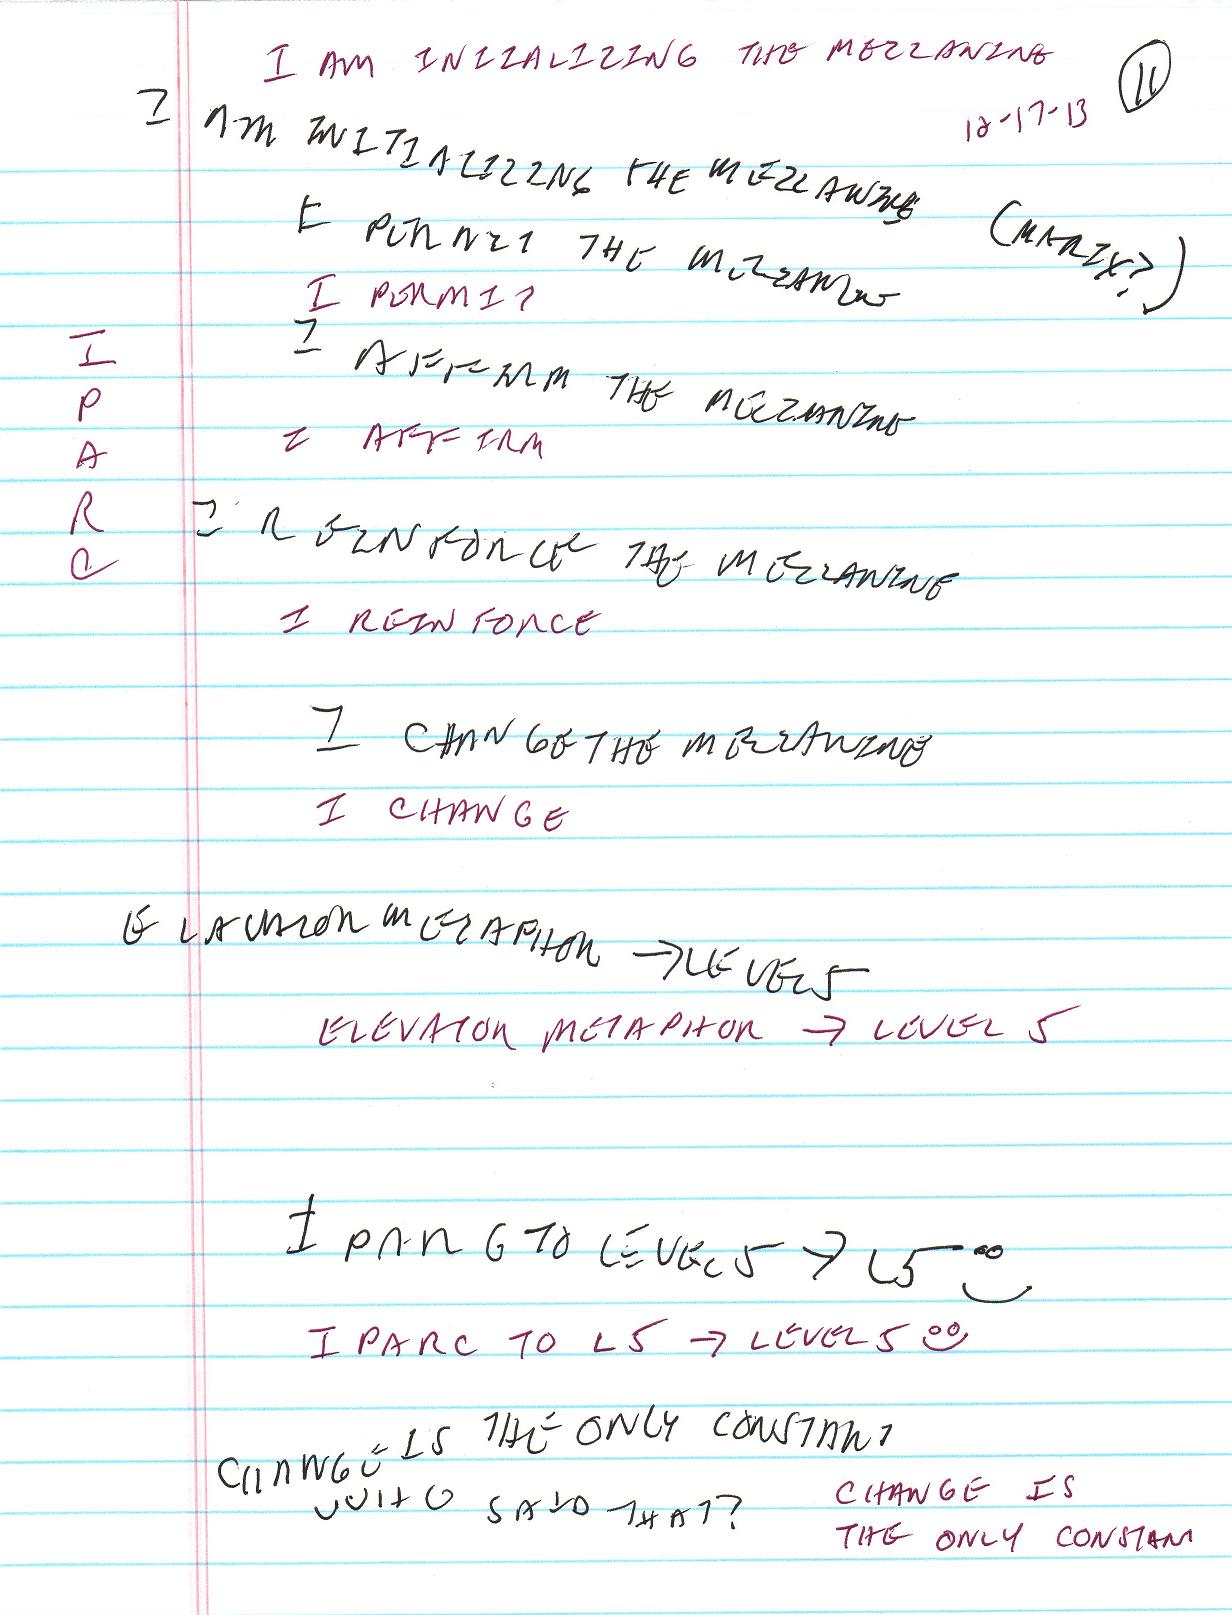 I AM INIIALIZING THE MEZZANINE
11
12-17-13
I AM INITIALIZZNG THE MEZZANINE
(MARIX?)
I PERMIT THE MEZZANINE
I PERMIT
I AFFIRM THE MEZZANINE
I AFFIRM
I REINFORCE THE MEZZANINE
I REINFORCE
I
P
A
R
C
I CHANGE THE MEZZANINE
I CHANGE
METAPHOR → LEVEL 5
ELEVATOR METAPHOR → LEVEL 5
I PAR C TO LEVEL 5 → L5
I PARC TO L5 → LEVEL 5
CHANGE IS THE ONLY CONSTANT
WHO SAID THAT?
CHANGE IS
THE ONLY CONSTAN